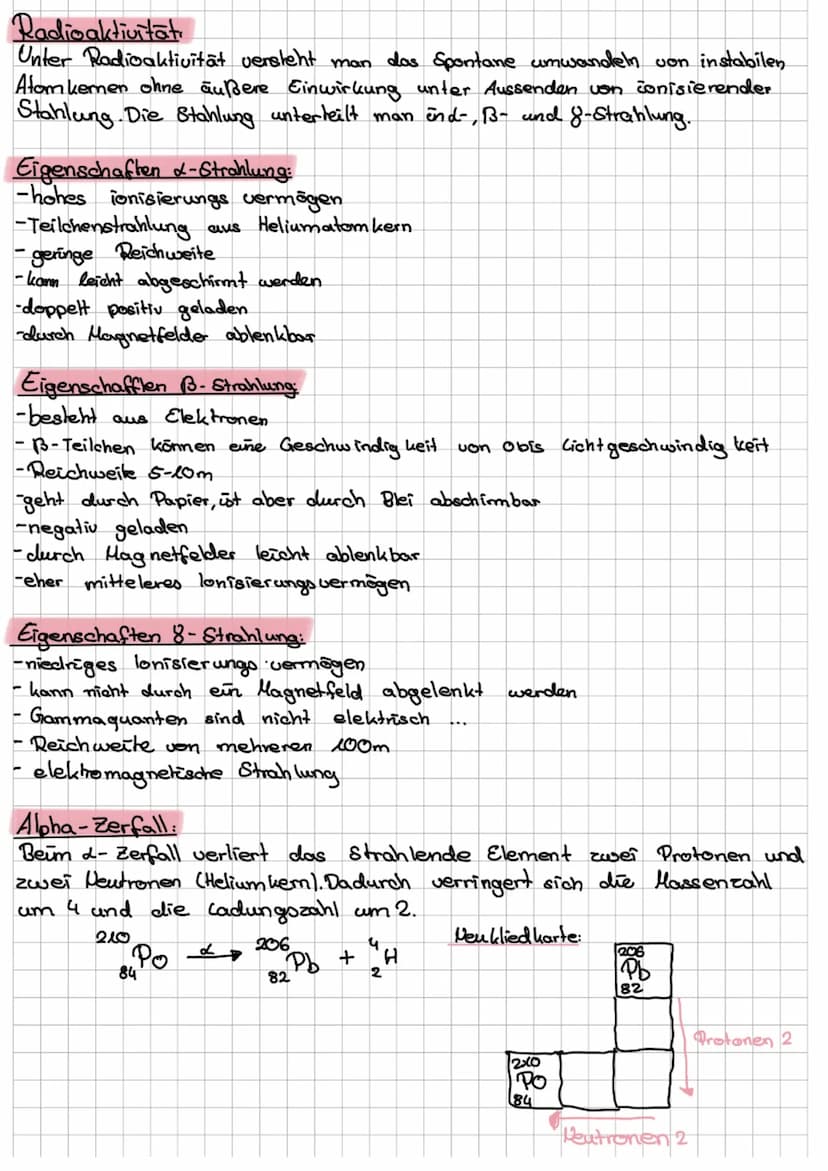 Radioaktivität:
Unter Radioaktivität versteht man das Spontane umwandeln von instabilen
Atomkernen ohne äußere Einwirkung unter Aussenden von ionisierender
Stahlung. Die Stahlung unterteilt man in α-, β- und γ-Strahlung.
Eigenschaften α-Strahlung:
-hohes ionisierungs vermögen
-Teilchenstrahlung aus Heliumatomkern
- geringe Reichweite
-kann leicht abgeschirmt werden
-doppelt positiv geladen
-durch Magnetfelder ablenkbar
Eigenschafften β-Strahlung:
-besteht aus Elektronen
- β-Teilchen können eine Geschwindigkeit von 0 bis Lichtgeschwindigkeit
-Reichweite 5-10m
-geht durch Papier, ist aber durch Blei abschirmbar
-negativ geladen
-durch Magnetfelder leicht ablenkbar
-eher mitteleres Ionisierungsvermögen
Eigenschaften γ-Strahlung:
-niedriges Ionisierungsvermögen
- kann nicht durch ein Magnetfeld abgelenkt werden
- Gammaquanten sind nicht elektrisch ...
- Reichweite von mehreren 100m
- elektromagnetische Strahlung
Alpha-Zerfall:
Beim α-Zerfall verliert das Strahlende Element zwei Protonen und
zwei Neutronen (Heliumkern). Dadurch verringert sich die Massenzahl
um 4 und die Ladungszahl um 2.
210 84 Po α → 206 82 Pb + 4 2 H
Neukliedkarte:
206
Pb
82
Protonen 2
210
Po
84
Neutronen 2